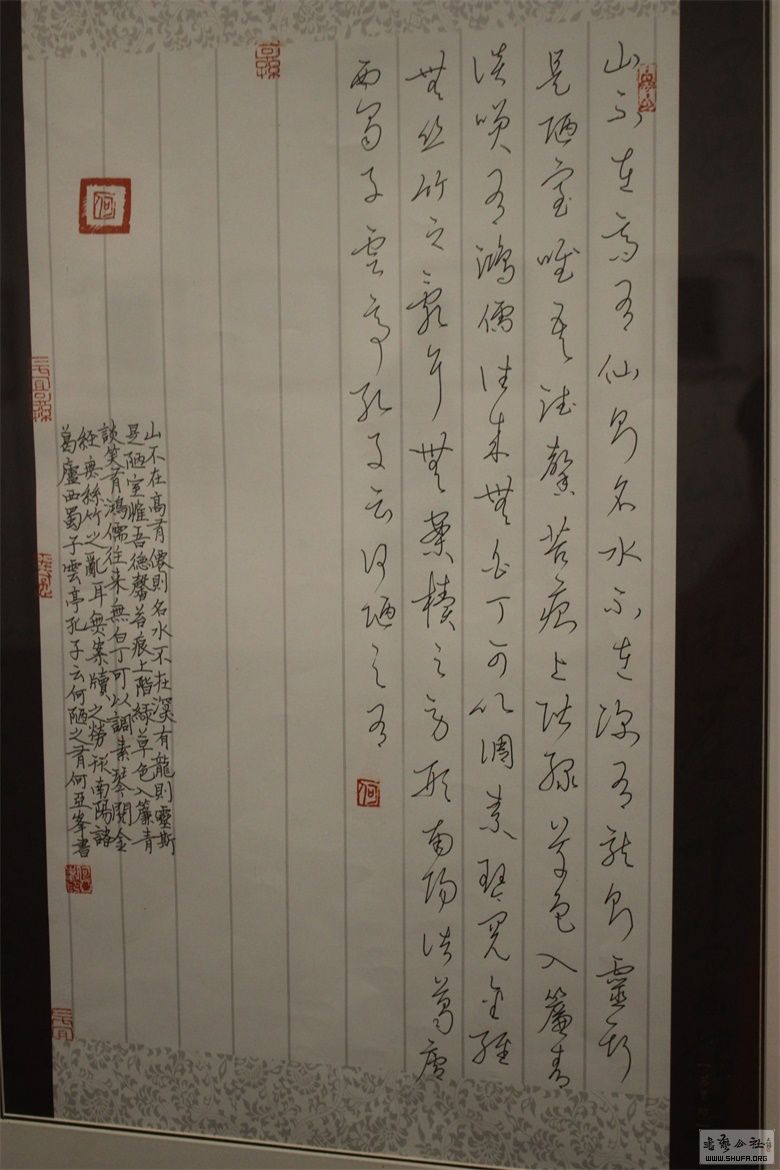 山不在高有仙則名水不在深有龍則靈斯
是陋室唯吾德馨苔痕上階綠草色入簾青
談笑有鴻儒往來無白丁可以調素琴閱金經
無絲竹之亂耳無案牘之勞形南陽諸葛廬
西蜀子雲亭孔子云何陋之有
何
何
山不在高有僊則名水不在深有龍則靈斯
是陋室惟吾德馨苔痕上階綠草色入簾青
談笑有鴻儒往来無白丁可以調素琴閱金
經無絲竹之亂耳無案牘之勞形南陽諸
葛廬西蜀子雲亭孔子云何陋之有何亞峯書
書藝公社
WWW.SHUFA.ORG